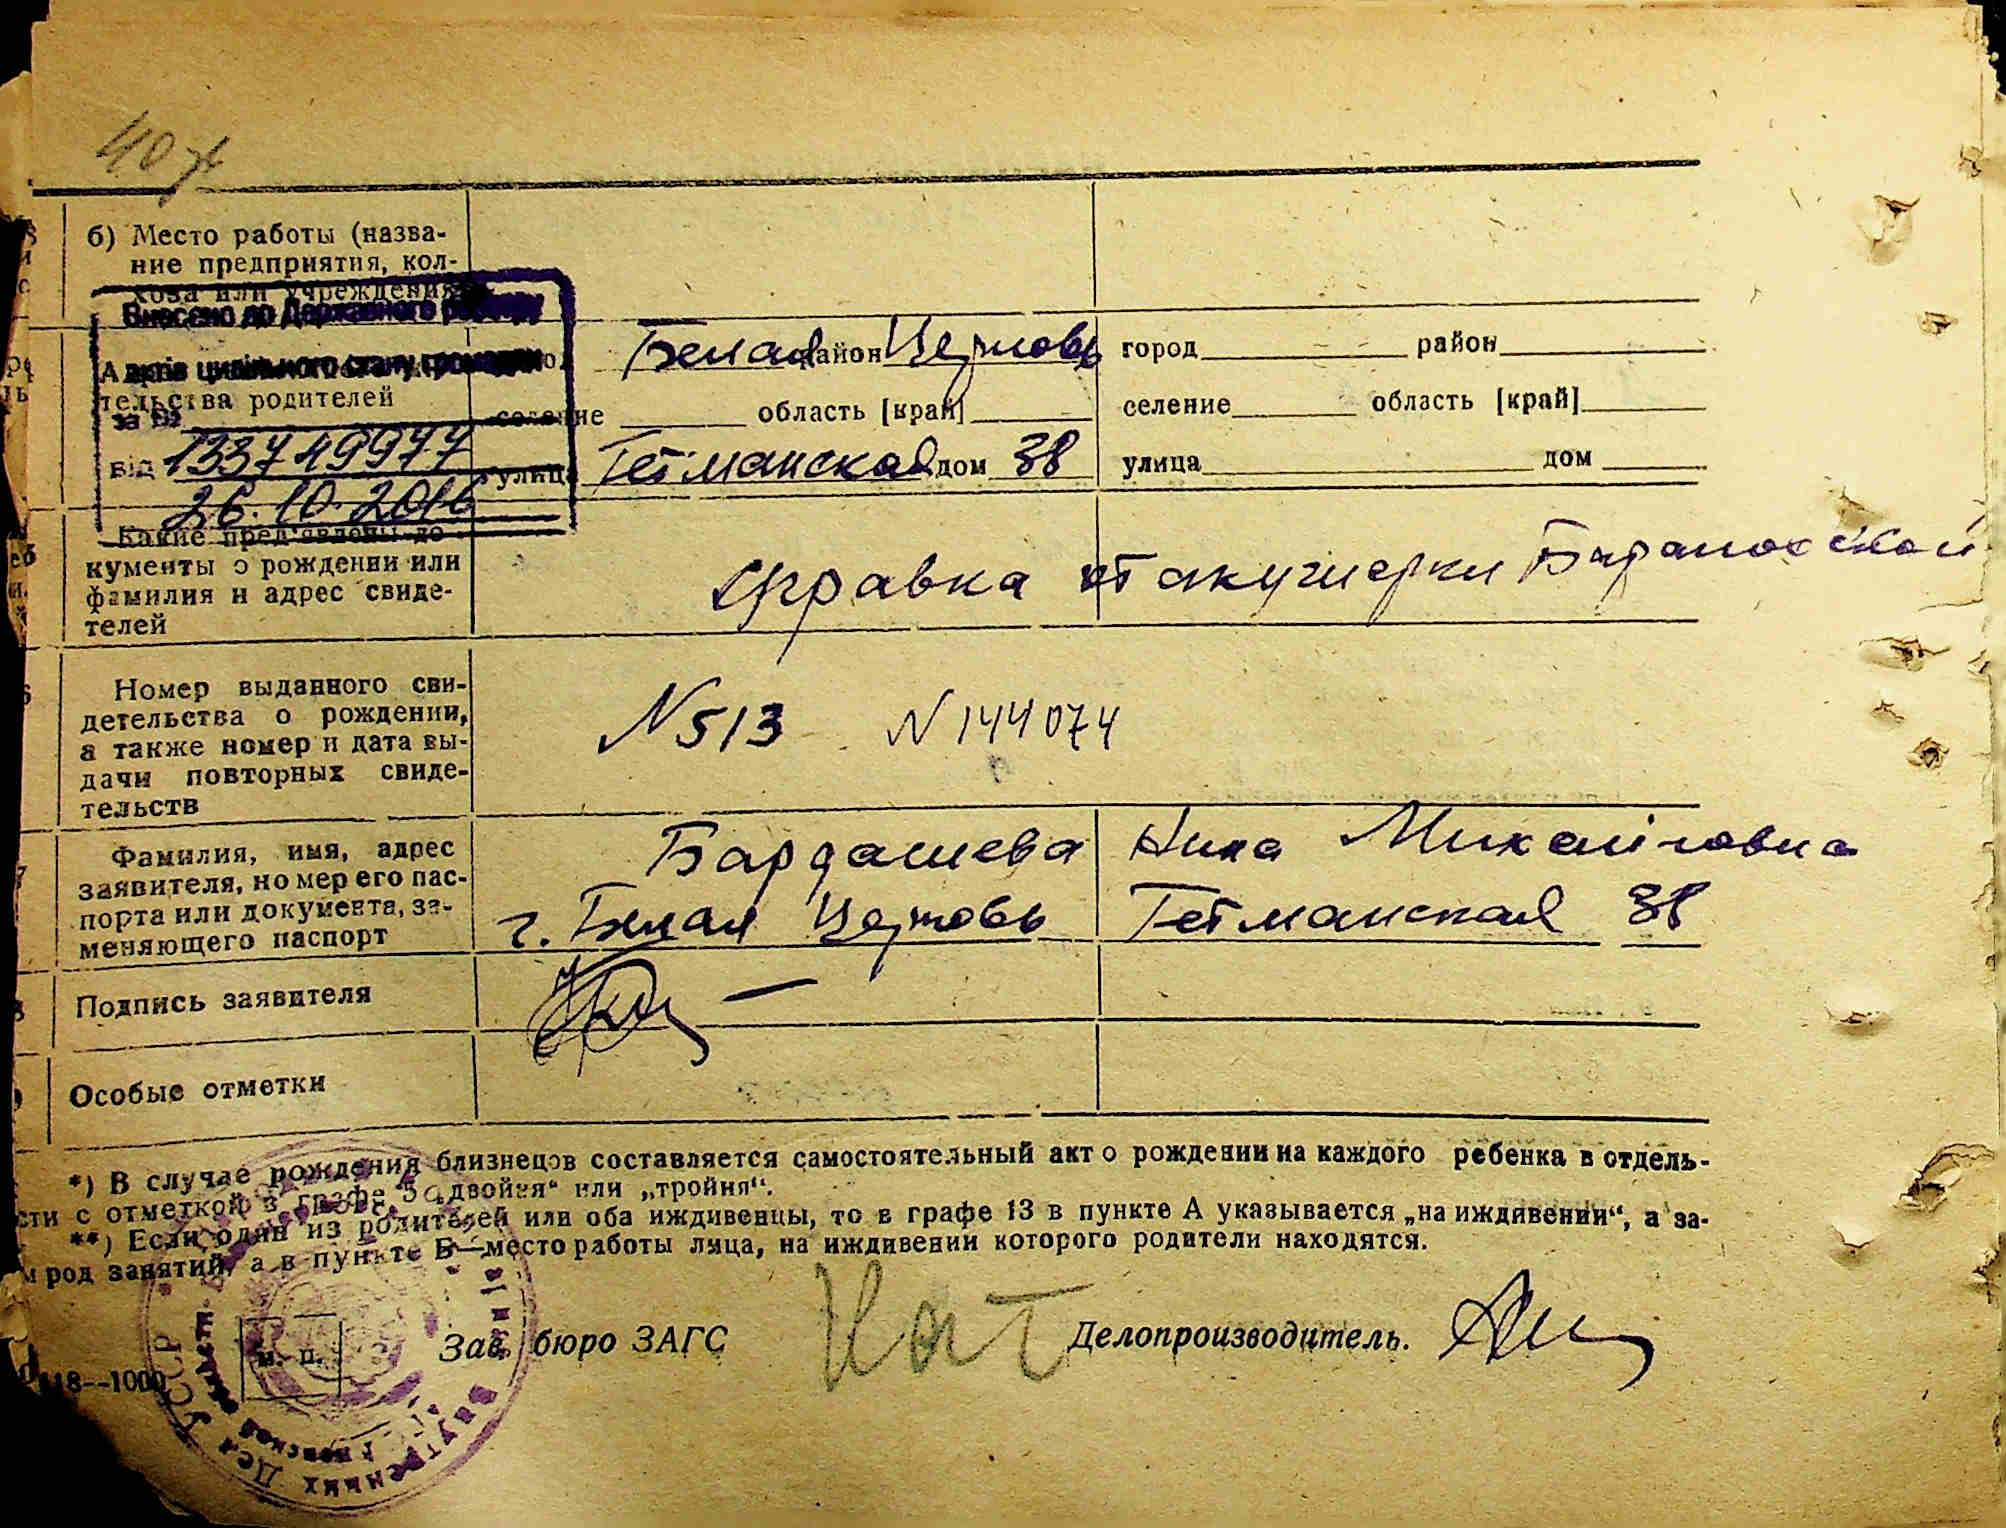 40
б) Место работы (назва-
ние предприятия, кол-
хоза или учреждения
Внесено до Державного реєстру
актів цивільного стану громадян
за №
від 133749977
26.10.2016
тельства родителей
Белая район Церковь
селение область [край]
улица Гетманская дом 38
город район
селение область [край]
улица дом
Какие пред'явлены до-
кументы о рождении или
фамилия и адрес свиде-
телей
Справка от акушерки Барановской
Номер выданного сви-
детельства о рождении,
а также номер и дата вы-
дачи повторных свиде-
тельств
N 513 N 144074
Фамилия, имя, адрес
заявителя, номер его пас-
порта или документа, за-
меняющего паспорт
Бардашева Нина Михайловна
г. Белая Церковь Гетманская 38
Подпись заявителя
Особые отметки
*) В случае рождения близнецов составляется самостоятельный акт о рождении на каждого ребенка в отдель-
сти с отметкой в графе 5 „двойня“ или „тройня“.
**) Если один из родителей или оба иждивенцы, то в графе 13 в пункте А указывается „на иждивении“, а за-
м род занятий, а в пункте Б—место работы лица, на иждивении которого родители находятся.
м. п.
Зав. бюро ЗАГС
Делопроизводитель.
118--1000
Внутренних Дел УССР